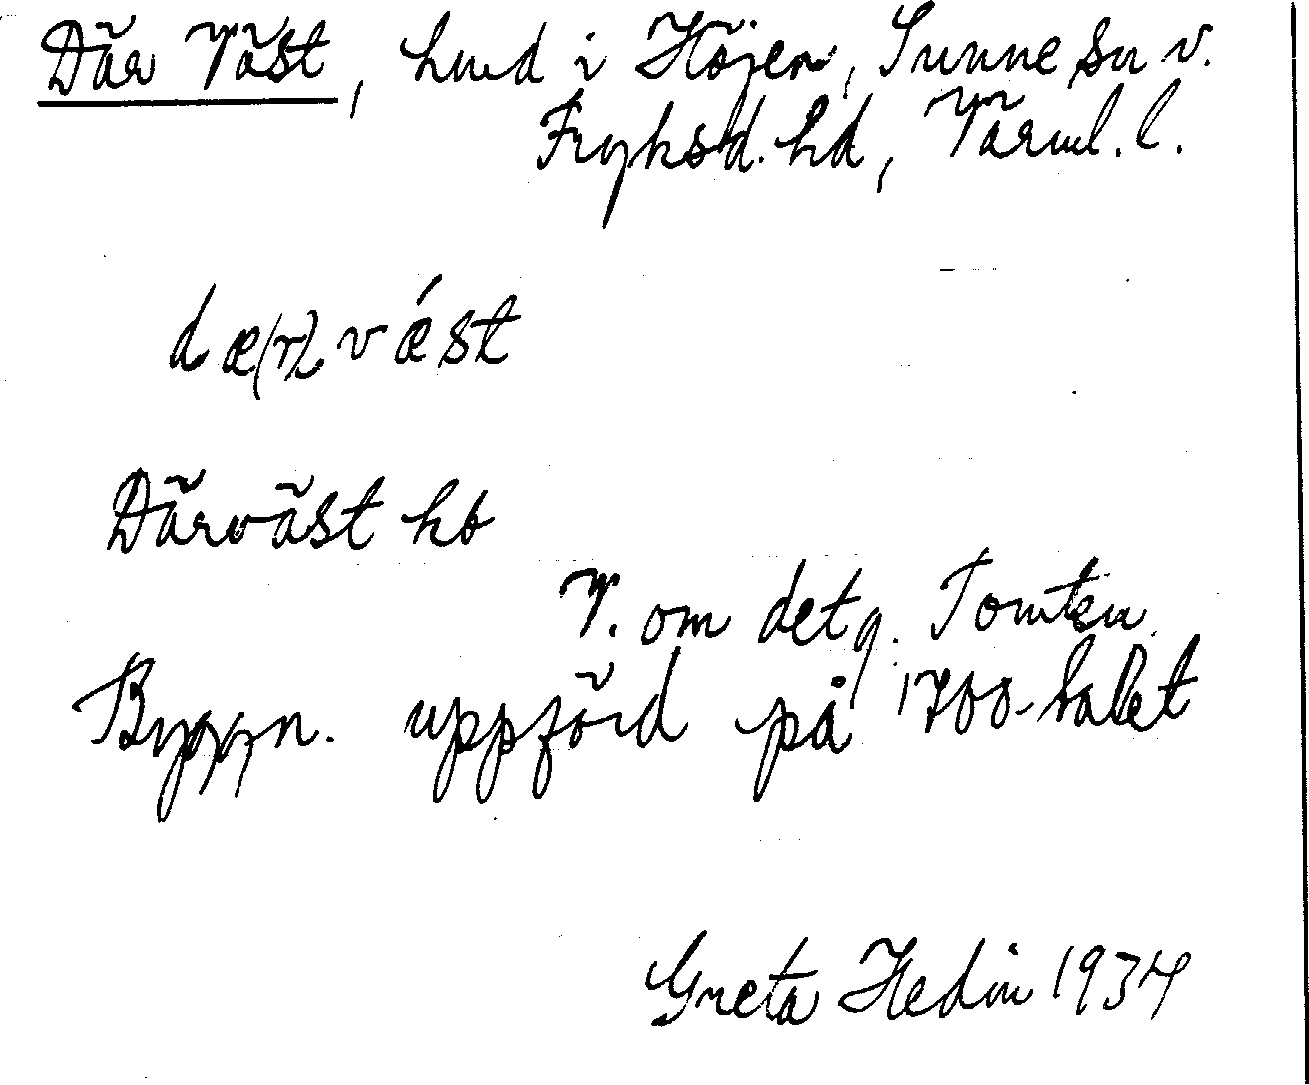 Där Väst, hmd i Höjen, Sunne sn v.
Fryksd. hd, Värml. l.
dæ(r) vǽst
Därväst hb
V. om det g. Tomten
Byggn. uppförd på 1700-talet
Greta Hedin 1934